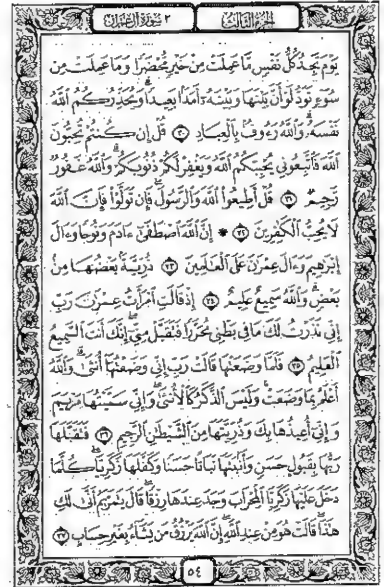 الجزء الثالث ٣ سورة آل عمران
يَوْمَ تَجِدُ كُلُّ نَفْسٍ مَّا عَمِلَتْ مِنْ خَيْرٍ مُّحْضَرًا وَمَا عَمِلَتْ مِن
سُوٓءٍ تَوَدُّ لَوْ أَنَّ بَيْنَهَا وَبَيْنَهُۥٓ أَمَدًۢا بَعِيدًا وَيُحَذِّرُكُمُ ٱللَّهُ
نَفْسَهُۥ وَٱللَّهُ رَءُوفٌۢ بِٱلْعِبَادِ ٣٠ قُلْ إِن كُنتُمْ تُحِبُّونَ
ٱللَّهَ فَٱتَّبِعُونِى يُحْبِبْكُمُ ٱللَّهُ وَيَغْفِرْ لَكُمْ ذُنُوبَكُمْ وَٱللَّهُ غَفُورٌ
رَّحِيمٌ ٣١ قُلْ أَطِيعُوا۟ ٱللَّهَ وَٱلرَّسُولَ فَإِن تَوَلَّوْا۟ فَإِنَّ ٱللَّهَ
لَا يُحِبُّ ٱلْكَـٰفِرِينَ ٣٢ * إِنَّ ٱللَّهَ ٱصْطَفَىٰٓ ءَادَمَ وَنُوحًا وَءَالَ
إِبْرَٰهِيمَ وَءَالَ عِمْرَٰنَ عَلَى ٱلْعَـٰلَمِينَ ٣٣ ذُرِّيَّةًۢ بَعْضُهَا مِنۢ
بَعْضٍ وَٱللَّهُ سَمِيعٌ عَلِيمٌ ٣٤ إِذْ قَالَتِ ٱمْرَأَتُ عِمْرَٰنَ رَبِّ
إِنِّى نَذَرْتُ لَكَ مَا فِى بَطْنِى مُحَرَّرًا فَتَقَبَّلْ مِنِّىٓ إِنَّكَ أَنتَ ٱلسَّمِيعُ
ٱلْعَلِيمُ ٣٥ فَلَمَّا وَضَعَتْهَا قَالَتْ رَبِّ إِنِّى وَضَعْتُهَآ أُنثَىٰ وَٱللَّهُ
أَعْلَمُ بِمَا وَضَعَتْ وَلَيْسَ ٱلذَّكَرُ كَٱلْأُنثَىٰ وَإِنِّى سَمَّيْتُهَا مَرْيَمَ
وَإِنِّىٓ أُعِيذُهَا بِكَ وَذُرِّيَّتَهَا مِنَ ٱلشَّيْطَـٰنِ ٱلرَّجِيمِ ٣٦ فَتَقَبَّلَهَا
رَبُّهَا بِقَبُولٍ حَسَنٍ وَأَنۢبَتَهَا نَبَاتًا حَسَنًا وَكَفَّلَهَا زَكَرِيَّا كُلَّمَا
دَخَلَ عَلَيْهَا زَكَرِيَّا ٱلْمِحْرَابَ وَجَدَ عِندَهَا رِزْقًا قَالَ يَـٰمَرْيَمُ أَنَّىٰ لَكِ
هَـٰذَا قَالَتْ هُوَ مِنْ عِندِ ٱللَّهِ إِنَّ ٱللَّهَ يَرْزُقُ مَن يَشَآءُ بِغَيْرِ حِسَابٍ ٣٧
٥٤